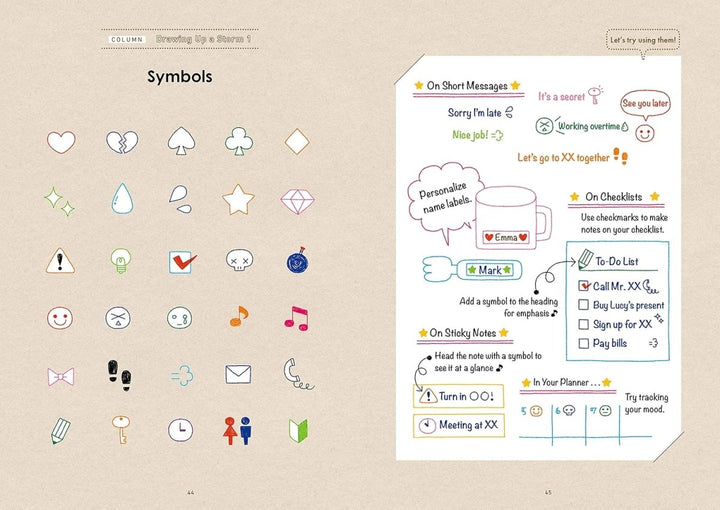 COLUMN Drawing Up a Storm 1
Symbols
44
Let's try using them!
On Short Messages
Sorry I'm late
It's a secret
See you later
Nice job!
Working overtime
Let's go to XX together
Personalize
name labels.
Emma
Mark
On Checklists
Use checkmarks to make
notes on your checklist.
To-Do List
Call Mr. XX
Buy Lucy's present
Sign up for XX
Pay bills
Add a symbol to the heading
for emphasis
On Sticky Notes
Head the note with a symbol to
see it at a glance
Turn in ○○!
Meeting at XX
In Your Planner...
5 6 7
Try tracking
your mood.
45